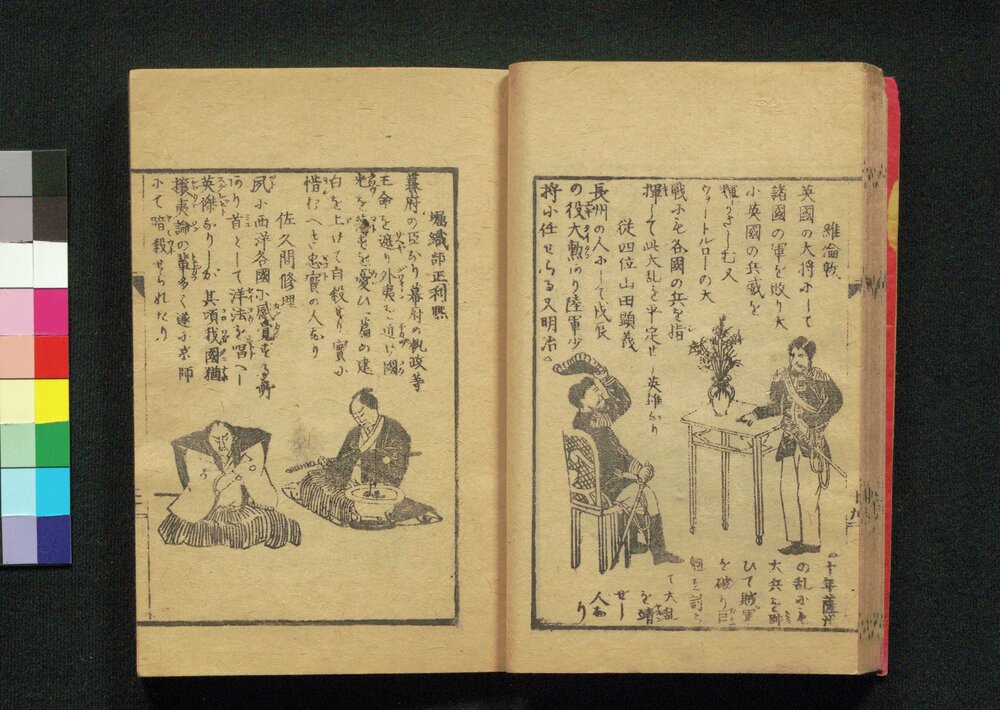 維倫敦
英國の大将にして
諸國の軍を敗り大
小英國の兵威を
輝かさしむ又
ウォートルローの大
戦にも各國の兵を指
揮して此大乱を平定せし英雄なり
従四位山田顕義
長州の人にして戊辰
の役大勲あり陸軍少
将に任せらる又明治
十年薩州
の乱にも
大兵を帥
ひて賊軍
を破り巨
魁を討
て大乱
を靖
せし
人なり
堀織部正利熈
幕府の臣なり幕府の執政等
王命を遮り外夷を近け國
を憂ひ一篇の建
白を上けて自殺せり實に
惜むへき忠實の人なり
佐久間修理
夙に西洋各國に
あり首として洋法を唱へし
英傑なりしか其頃我國猶
攘夷論の輩多く遂に京師
にて暗殺せられたり